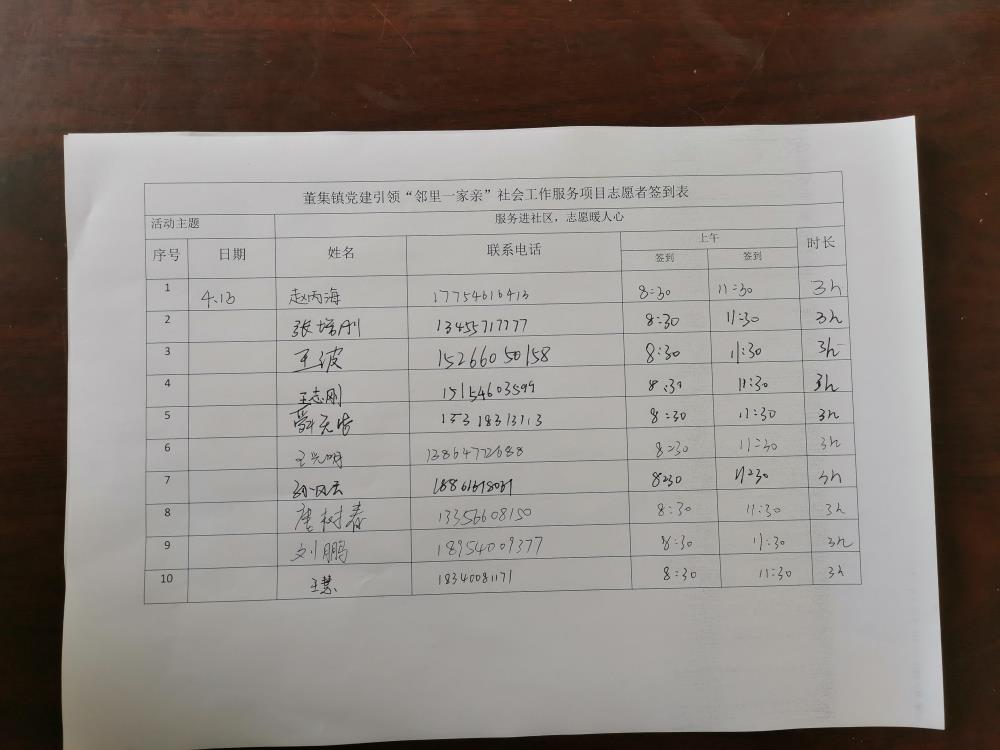 董集镇党建引领“邻里一家亲”社会工作服务项目志愿者签到表
活动主题 服务进社区，志愿暖人心
序号 日期 姓名 联系电话 上午 时长
签到 签到
1 4.13 赵丙海 17754616413 8:30 11:30 3h
2 张培刚 13455717777 8:30 11:30 3h
3 王波 15266050158 8:30 11:30 3h
4 王志刚 15154603599 8:30 11:30 3h
5 15318313113 8:30 11:30 3h
6 王光明 13864772688 8:30 11:30 3h
7 8:30 11:30 3h
8 唐树春 13356608150 8:30 11:30 3h
9 刘鹏 18954009377 8:30 11:30 3h
10 王慧 18340081171 8:30 11:30 3h